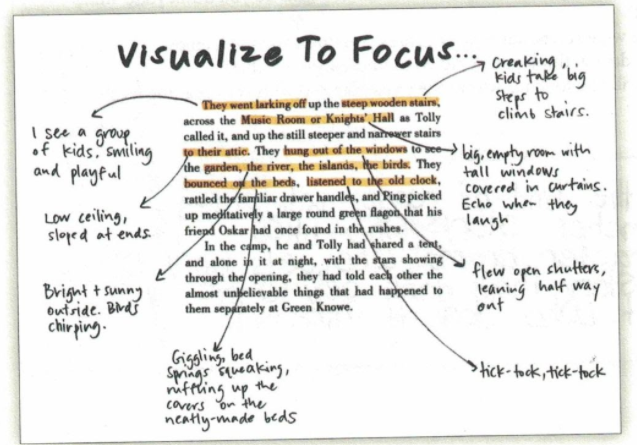 Visualize To Focus...
They went larking off up the steep wooden stairs,
across the Music Room or Knights' Hall as Tolly
called it, and up the still steeper and narrower stairs
to their attic. They hung out of the windows to see
the garden, the river, the islands, the birds. They
bounced on the beds, listened to the old clock,
rattled the familiar drawer handles, and Ping picked
up meditatively a large round green flagon that his
friend Oskar had once found in the rushes.
In the camp, he and Tolly had shared a tent,
and alone in it at night, with the stars showing
through the opening, they had told each other the
almost unbelievable things that had happened to
them separately at Green Knowe.
I see a group
of kids, smiling
and playful
Low ceiling,
sloped at ends.
Bright + sunny
outside. Birds
chirping.
Giggling, bed
springs squeaking,
ruffling up the
covers on the
neatly-made beds
Creaking,
kids take big
steps to
climb stairs.
big, empty room with
tall windows
covered in curtains.
Echo when they
laugh
flew open shutters,
leaning half way
out
tick-tock, tick-tock